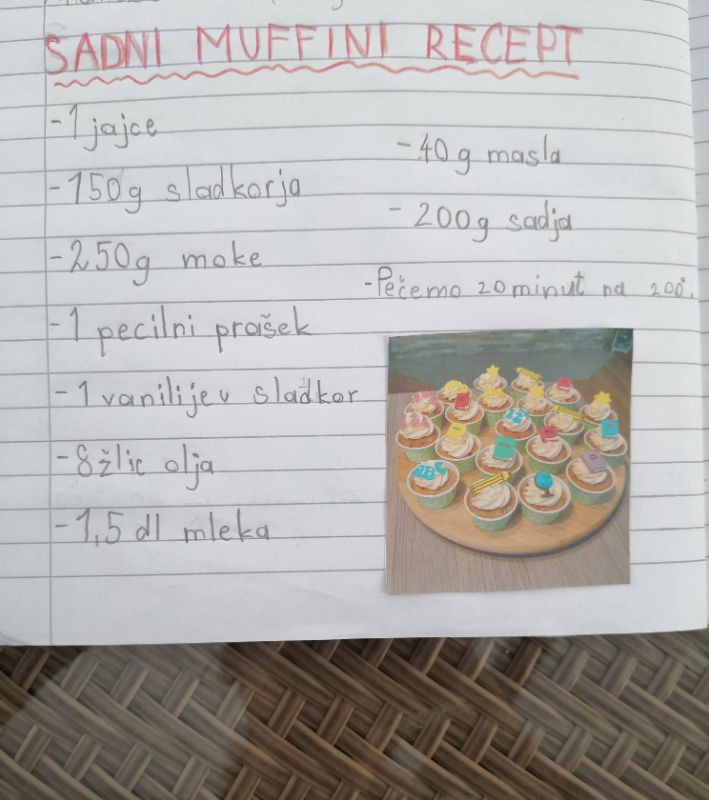 SADNI MUFFINI RECEPT
-1 jajce
-150g sladkorja
-250g moke
-1 pecilni prašek
-1 vanilijev sladkor
-8 žlic olja
-1,5 dl mleka
-40g masla
-200g sadja
-Pečemo 20 minut na 200°.
ABC